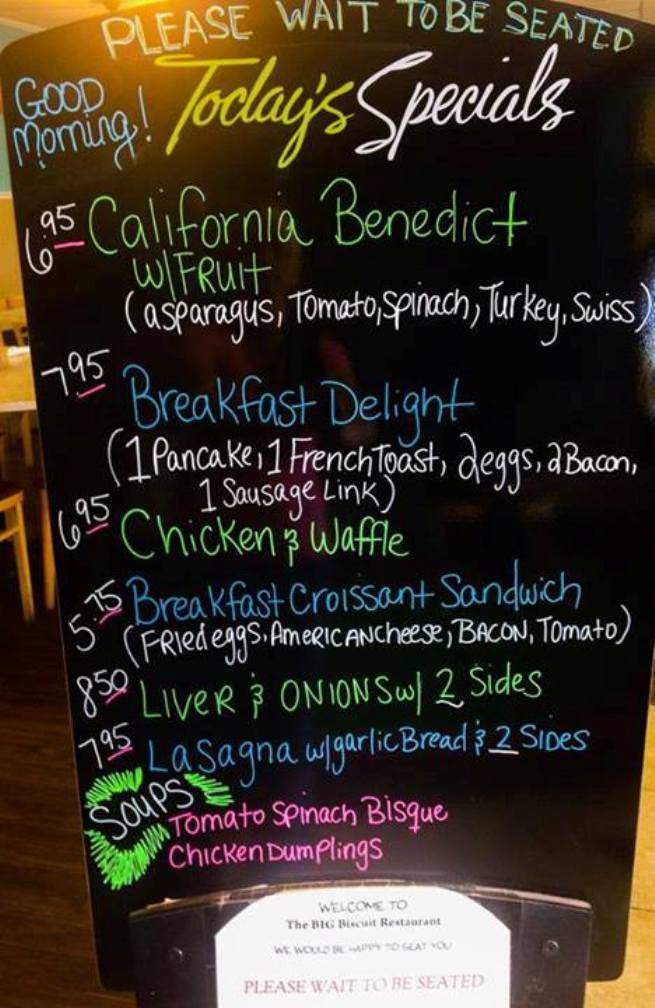 PLEASE WAIT TO BE SEATED
GOOD
Morning!
Today's Specials
6.95 California Benedict
W/FRUIT
(asparagus, Tomato, Spinach, Turkey, Swiss)
7.95
Breakfast Delight
(1 Pancake, 1 French Toast, 2 eggs, 2 Bacon,
1 Sausage Link)
6.95 Chicken & Waffle
5.75 Breakfast Croissant Sandwich
(Fried eggs, American Cheese, BACON, Tomato)
8.50 LIVER & ONIONS w/ 2 Sides
7.95 Lasagna w/garlic Bread & 2 Sides
Soups
Tomato Spinach Bisque
Chicken Dumplings
WELCOME TO
The BIG Biscuit Restaurant
WE WOULD BE HAPPY TO SEAT YOU
PLEASE WAIT TO BE SEATED